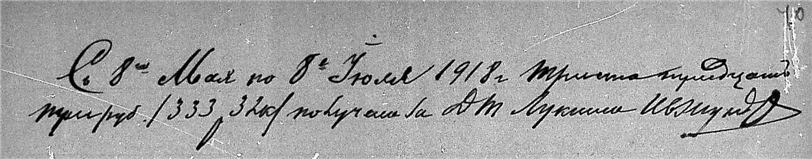 С 8го Мая по 8е Июля 1918 г триста тридцать
три руб. /333 р 32 к/ получила Лукина